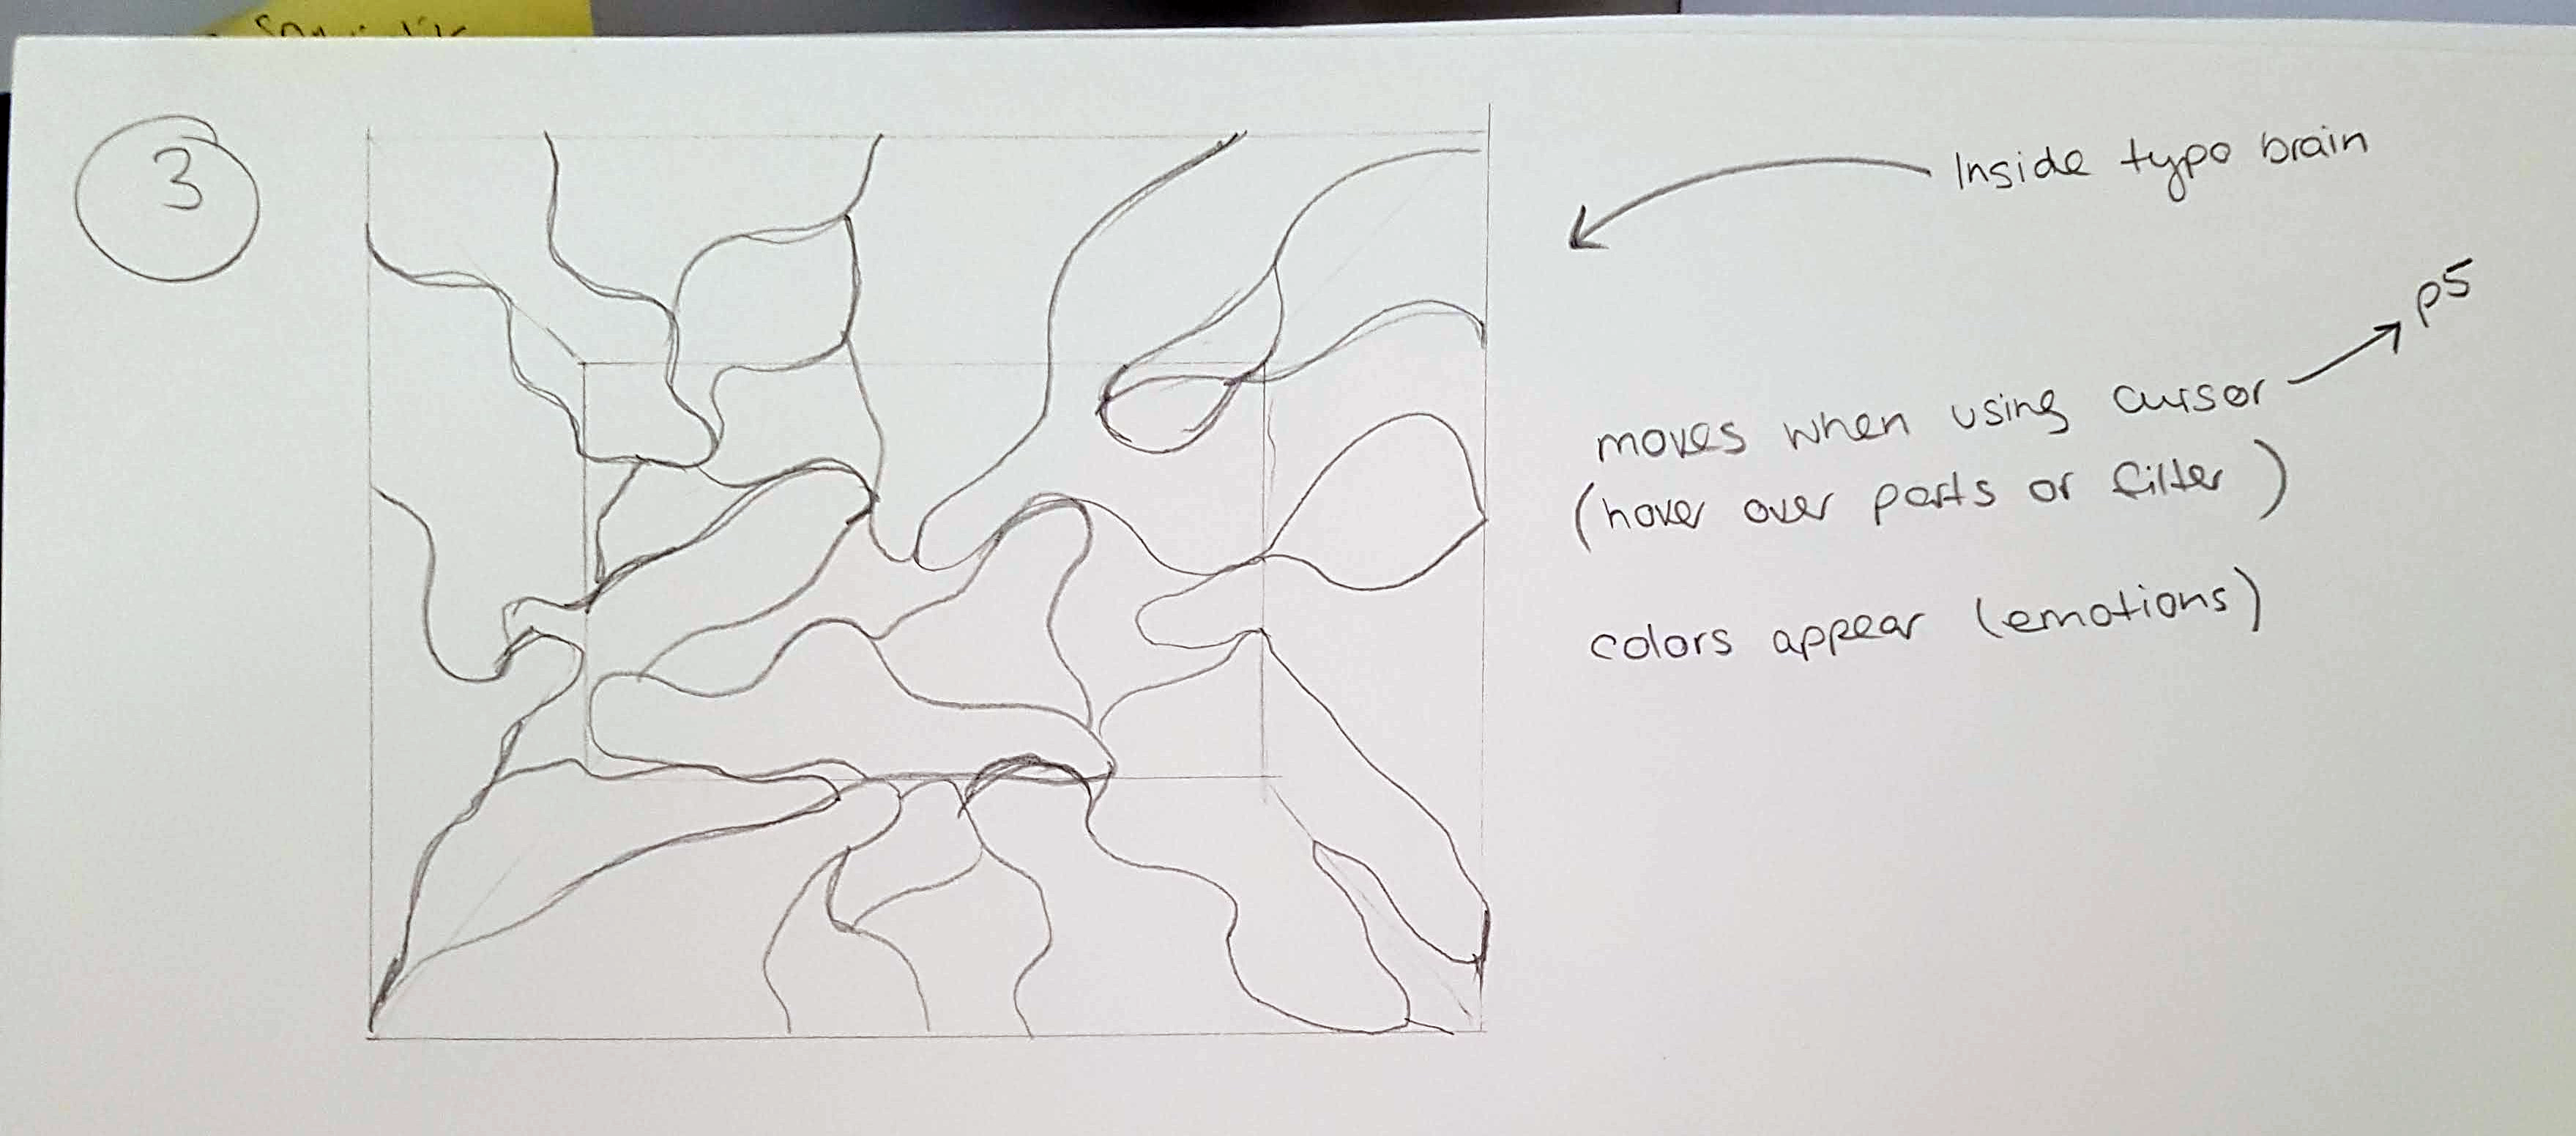 3
Inside typo brain
p5
moves when using cursor
(hover over parts or filter)
colors appear (emotions)